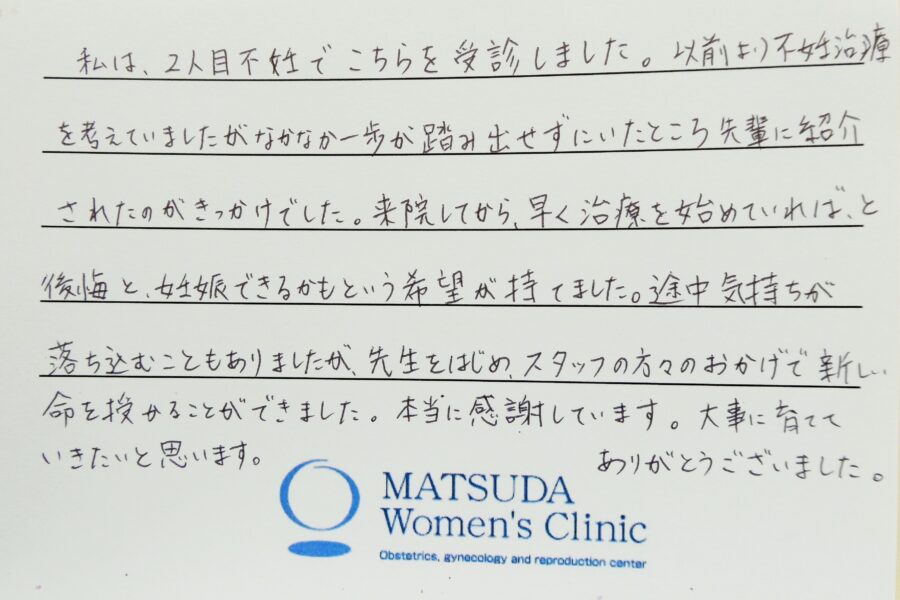 私は、2人目不妊でこちらを受診しました。以前より不妊治療
を考えていましたがなかなか一歩が踏み出せずにいたところ先輩に紹介
されたのがきっかけでした。来院してから、早く治療を始めていれば、と
後悔と、妊娠できるかもという希望が持てました。途中気持ちが
落ち込むこともありましたが、先生をはじめ、スタッフの方々のおかげで新しい
命を授かることができました。本当に感謝しています。大事に育てて
いきたいと思います。 ありがとうございました。
MATSUDA
Women's Clinic
Obstetrics, gynecology and reproduction center